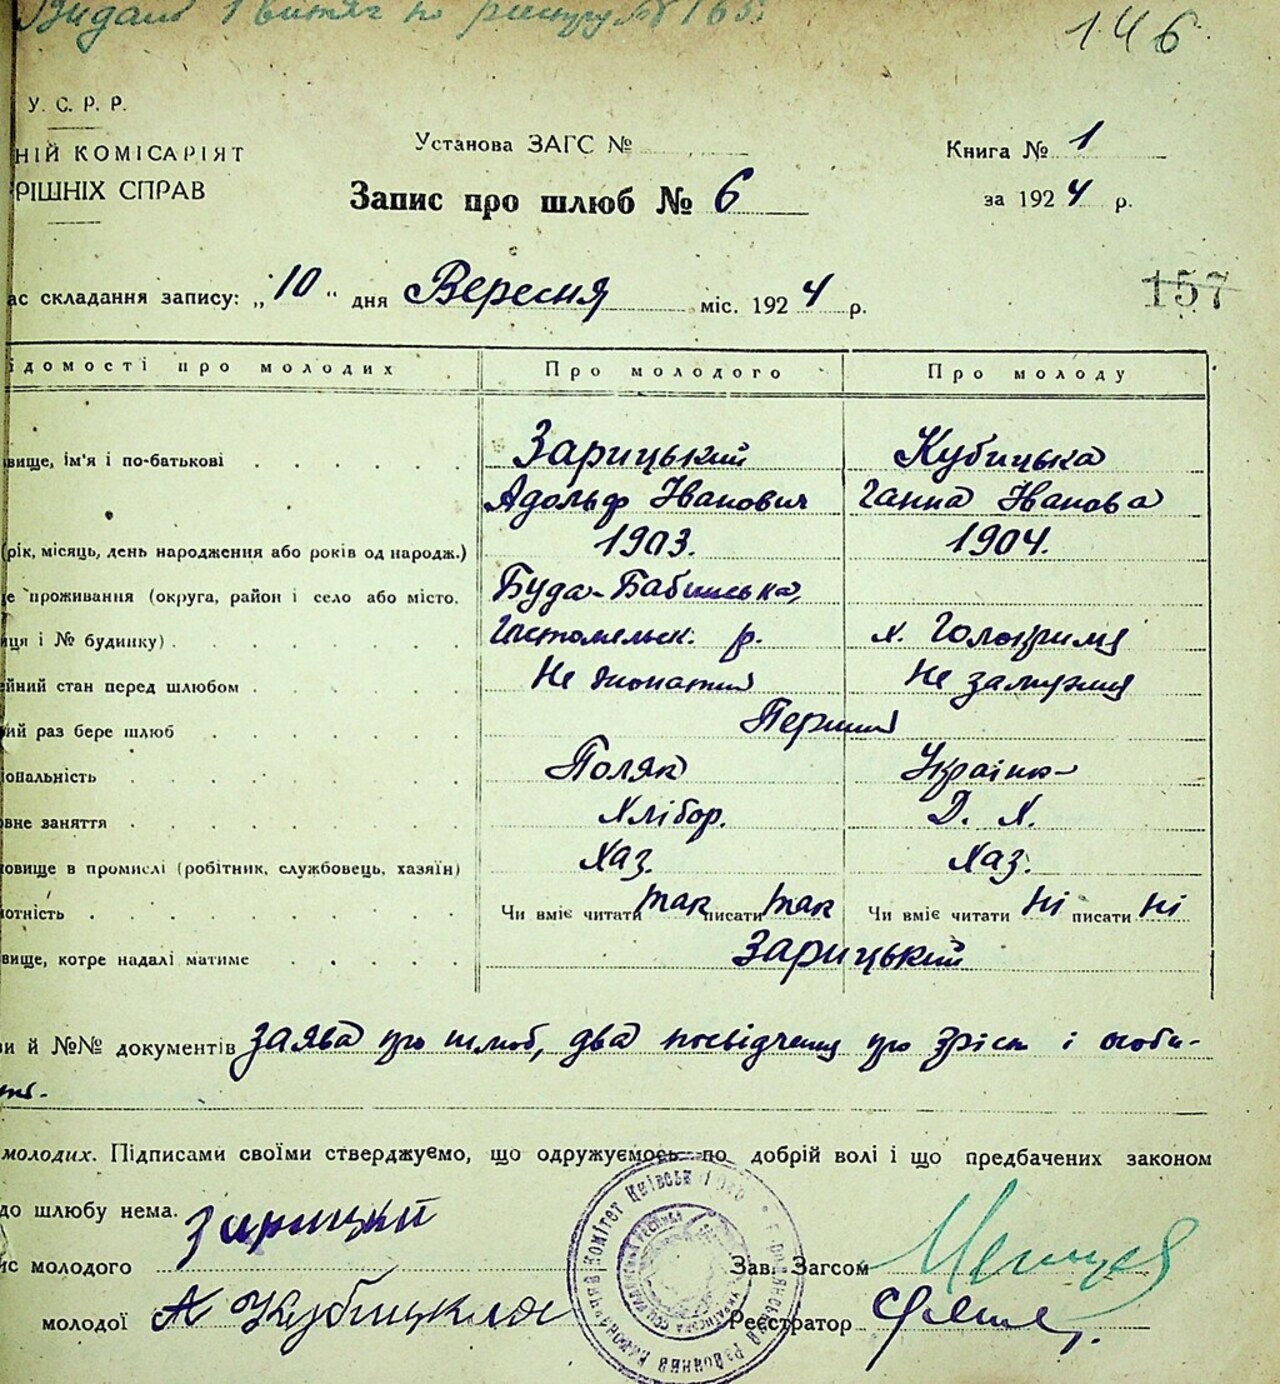 Видано 1 витяг по реєстру № 165.
146
У. С. Р. Р.
НІЙ КОМІСАРІЯТ
РІШНІХ СПРАВ
Установа ЗАГС №
Книга № 1
Запис про шлюб № 6
за 1924 р.
157
ас складання запису: „10" дня Вересня міс. 1924 р.
ідомості про молодих Про молодого Про молоду
вище, ім'я і по-батькові Зарицький Кубицька
Адольф Іванович Ганна Іванова
(рік, місяць, день народження або років од народж.) 1903. 1904.
е проживання (округа, район і село або місто. Буда-Бабинська,
иця і № будинку) р. х.
ейний стан перед шлюбом Не жонатий Не замужня
ий раз бере шлюб Перший
іональність Поляк Українка
вне заняття Хлібор. Д. Х.
овище в промислі (робітник, службовець, хазяїн) Хаз. Хаз.
отність Чи вміє читати так писати так Чи вміє читати ні писати ні
вище, котре надалі матиме Зарицький
ви й №№ документів заява про шлюб, два посвідчення про зріст і особи-
сті.
молодих. Підписами своїми стверджуємо, що одружуємось по добрій волі і що предбачених законом
до шлюбу нема.
Зарицкий
ис молодого
Зав. Загсом
молодої А Кубицкая
Реєстратор